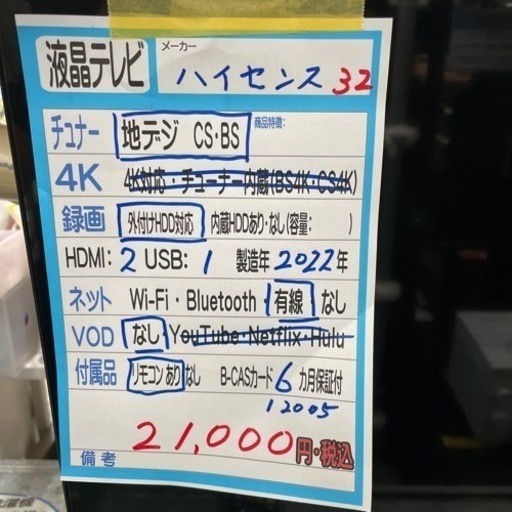 液晶テレビ
メーカー
ハイセンス 32
チュナー 地デジ CS・BS 商品特徴:
4K 4K対応・チューナー内蔵(BS4K・CS4K)
録画 外付けHDD対応 内蔵HDDあり・なし(容量: )
HDMI: 2 USB: 1 製造年 2022年
ネット Wi-Fi・Bluetooth・有線 なし
VOD なし YouTube・Netflix・Hulu
付属品 リモコンあり なし B-CASカード 6カ月保証付
12005
21,000円・税込
備考